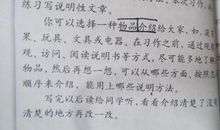 练习写说明性文章。
你可以选择一种物品介绍给大家,如,蔬
果、玩具、文具或电器。在习作之前,通过观
观、访问、阅读说明书等方式,尽可能多地了解
物品,然后再想一想,可以从哪些方面、按照
顺序来介绍,能用上哪些说明方法。
写完以后读给同学听,看看介绍清楚了没
清楚的地方再改一改。